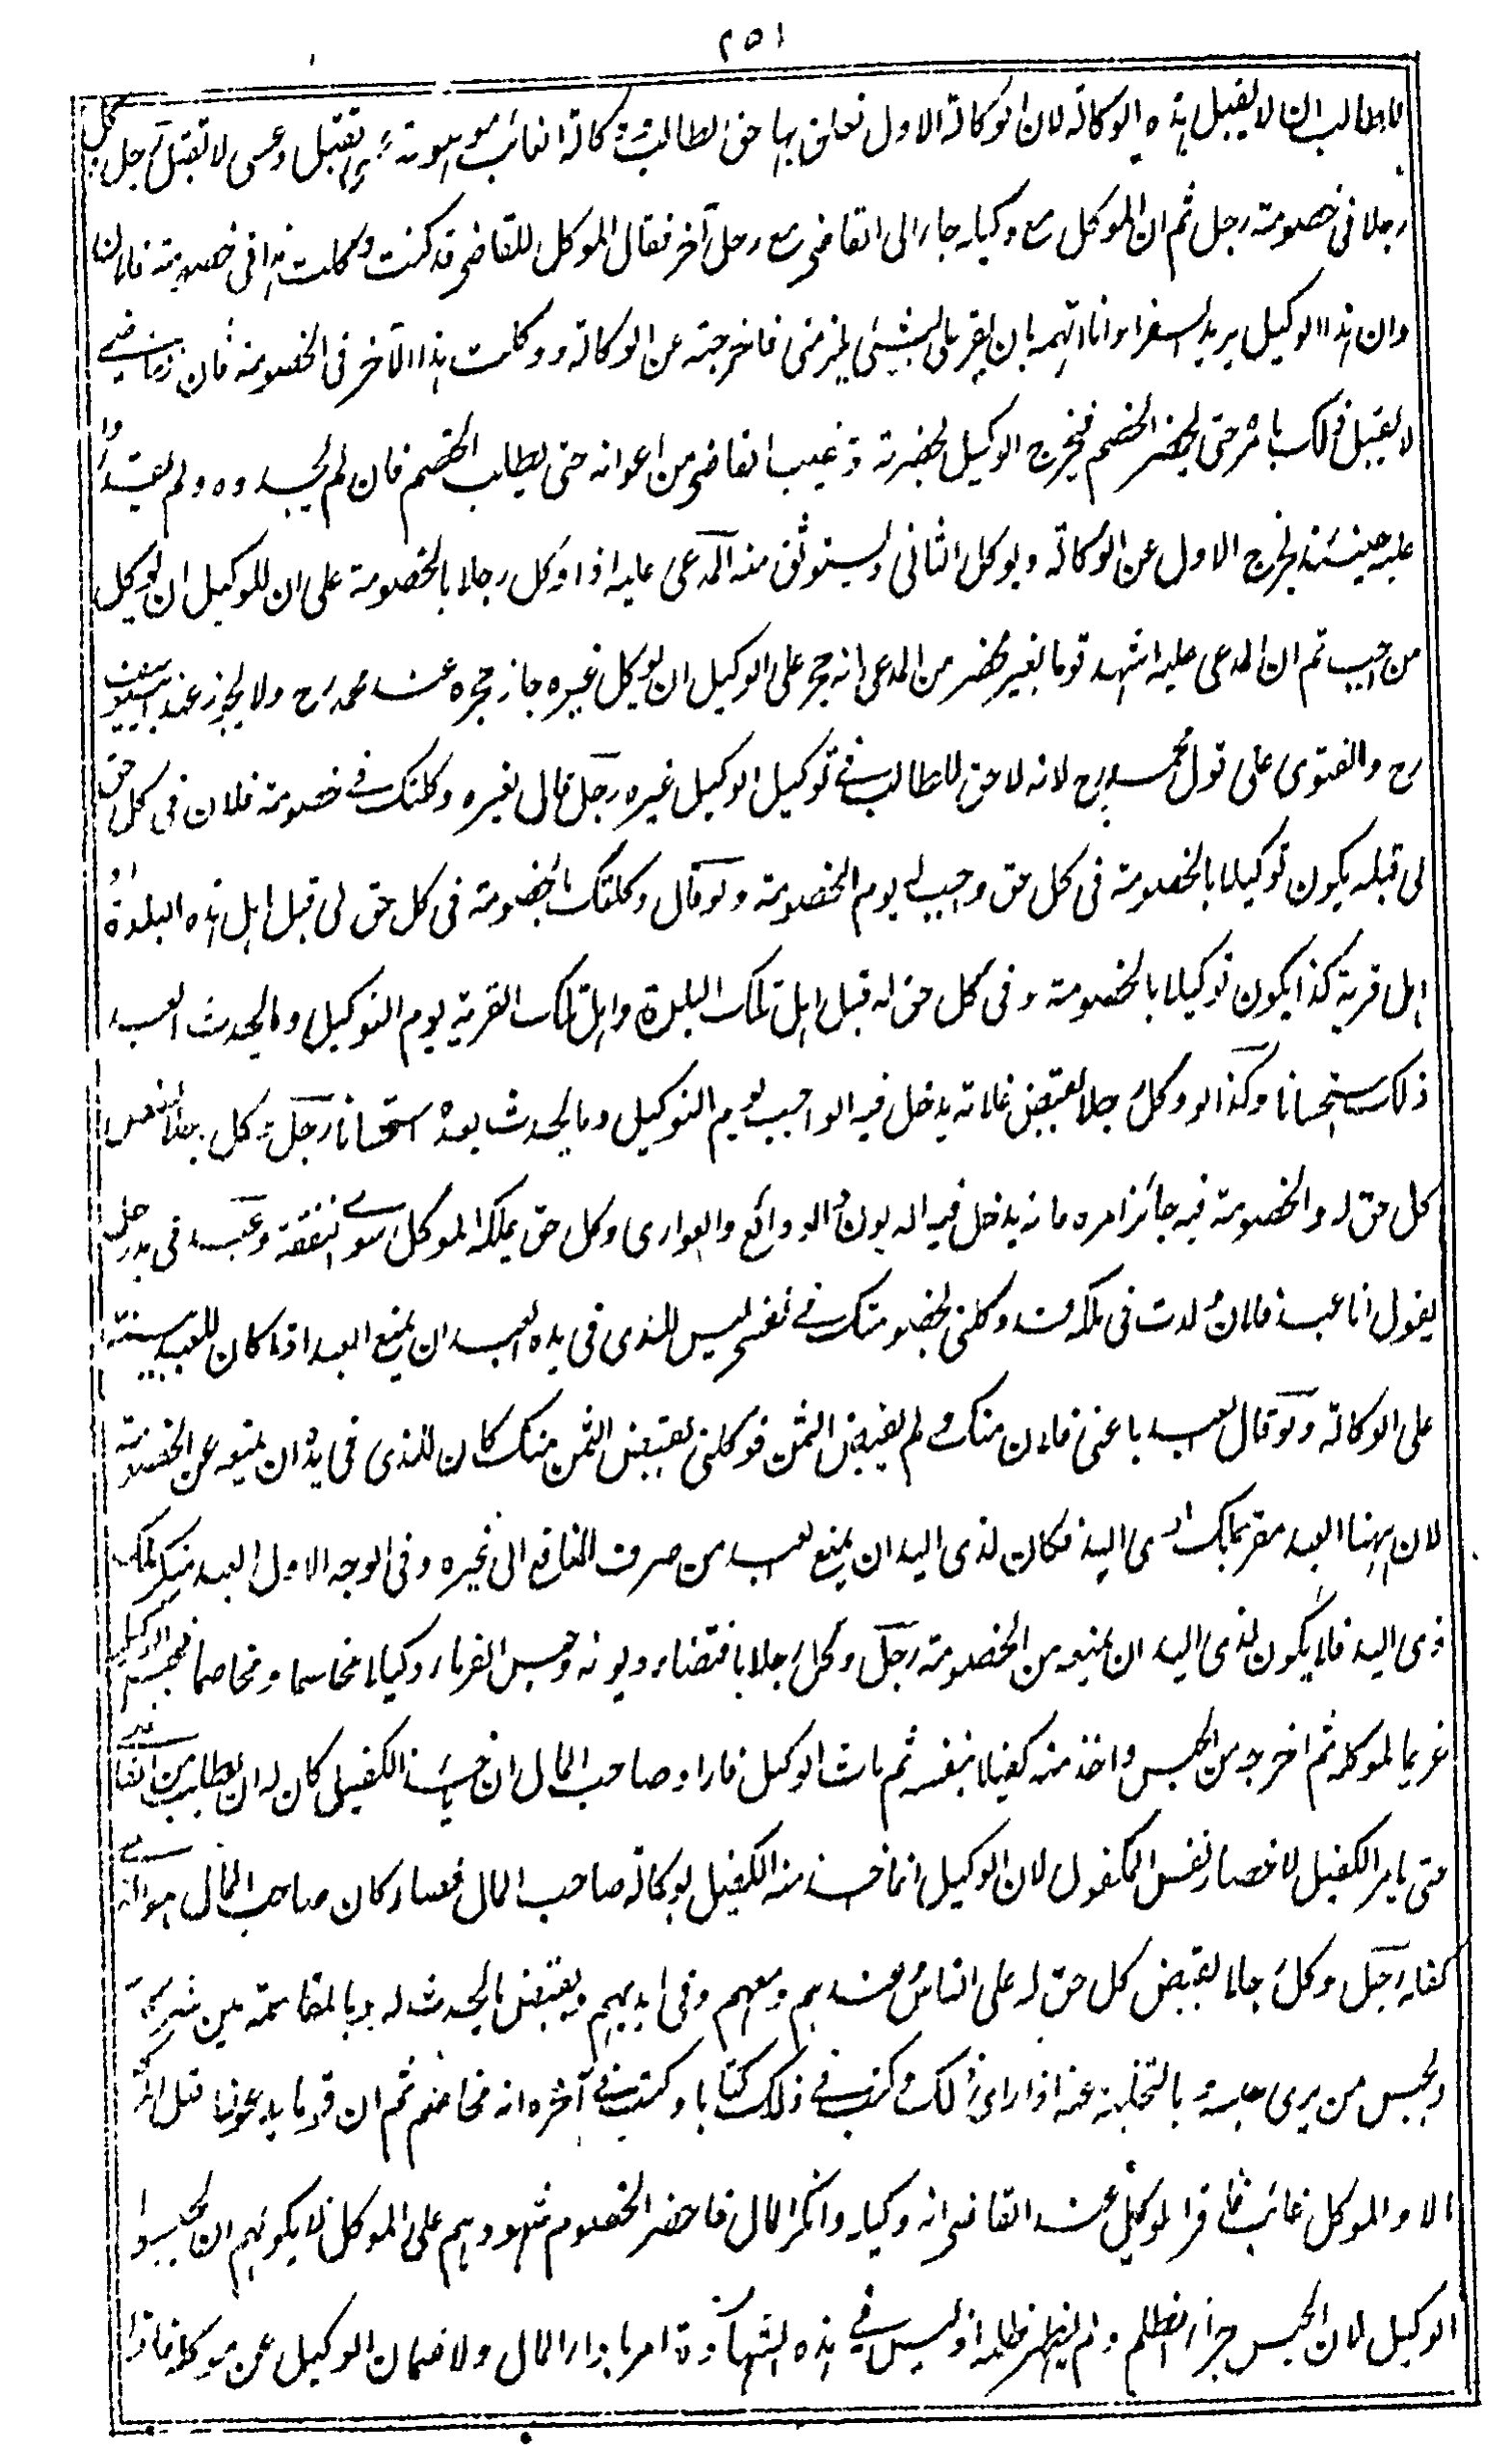 ٢٥١
للطالب ان لا يقبل هذه الوكالة لان الوكالة الاول تعلق بها حق الطالب ووكالة الغائب موهومة عسى تقبل وعسى لا تقبل رجل وكل
رجلا فى خصومة رجل ثم ان الموكل مع وكيله جاء الى القاضى مع رجل آخر فقال الموكل للقاضى قد كنت وكلت هذا فى خصومة فلان
وان هذا الوكيل يريد السفر وانا اتهمه بان يقر على بشىء يلزمنى فاخرجته عن الوكالة ووكلت هذا الآخر فى الخصومة فان القاضى
لا يقبل ذلك يا مر حتى يحضر الخصم فيخرج الوكيل بحضرته ويبعث القاضى من اعوانه حتى يطلب الخصم فان لم يجدوه ولم يقدروا
عليه حينئذ يخرج الاول عن الوكالة ويوكل الثانى ويستوثق منه المدعى عليه اذا وكل رجلا بالخصومة على ان للوكيل ان يوكل
من احب ثم ان المدعى عليه اشهد قوما بغير محضر من المدعى انه حجر على الوكيل ان يوكل غيره جاز حجره عند محمد رح ولا يجوز عند ابى يوسف
رح والفتوى على قول محمد رح لانه لا حق للطالب فى توكيل الوكيل غيره رجل قال لغيره وكلتك فى خصومة فلان فى كل حق
لى قبله يكون توكيلا بالخصومة فى كل حق واجب له يوم الخصومة ولو قال وكلتك بالخصومة فى كل حق لى قبل اهل هذه البلدة او
اهل قرية كذا يكون توكيلا بالخصومة وفى كل حق له قبل اهل تلك البلدة واهل تلك القرية يوم التوكيل وما يحدث بعد
ذلك استحسانا وكذا لو وكل رجلا بقبض غلاته يدخل فيه الواجب يوم التوكيل وما يحدث بعده استحسانا رجل وكل رجلا بقبض
كل حق له والخصومة فيه جائز امره فانه يدخل فيه الديون والودائع والعوارى وكل حق يملكه الموكل سوى النفقة عبد فى يد رجل
يقول انا عبد فلان ولدت فى ملكه وقد وكلنى بخصومتك فى نفسى ليس للذى فى يده العبد ان يمنع العبد اذا كان للعبد بينة
على الوكالة ولو قال العبد باعنى فلان منك ولم يقبض الثمن فوكلنى بقبض الثمن منك كان للذى فى يده ان يمنعه عن الخصومة
لان ههنا العبد مقر بملك ذى اليد فكان لذى اليد ان يمنع العبد من صرف المنافع الى غيره وفى الوجه الاول العبد منكر لملك
ذى اليد فلا يكون لذى اليد ان يمنعه من الخصومة رجل وكل رجلا باقتضاء ديونه وحبس الغرماء وكيلا مخاصما ومخاصما فحبس الوكيل
غريما لموكله ثم اخرجه من الحبس واخذ منه كفيلا بنفسه ثم مات الوكيل فاراد صاحب المال ان ياخذ الكفيل كان له ان يطالب من القاضى
حتى يامر الكفيل لاحضار نفس المكفول لان الوكيل انما اخذ منه الكفيل بوكالة صاحب المال فصار كان صاحب المال هو الذى
كفله رجل وكل رجلا بقبض كل حق له على الناس وعندهم ومعهم وفى ايديهم وبقبض ما يحدث له وبالمقاسمة بين شركائه
وبحبس من يرى حبسه وبالتخلية عنه اذا راى ذلك وكتب فى ذلك كتابا وكتب فى آخره انه مخاصم ثم ان قوما يدعون قبل الموكل
مالا والموكل غائب فاقر الوكيل عند القاضى انه وكيله وانكر المال فاحضر الخصوم شهودهم على الموكل لا يكون لهم ان يحبسوا
الوكيل لان الحبس جزاء الظلم ولم يظهر ظلمه اذ ليس فى هذه الشهادة امر باداء المال ولا ضمان الوكيل عن موكله فاذا